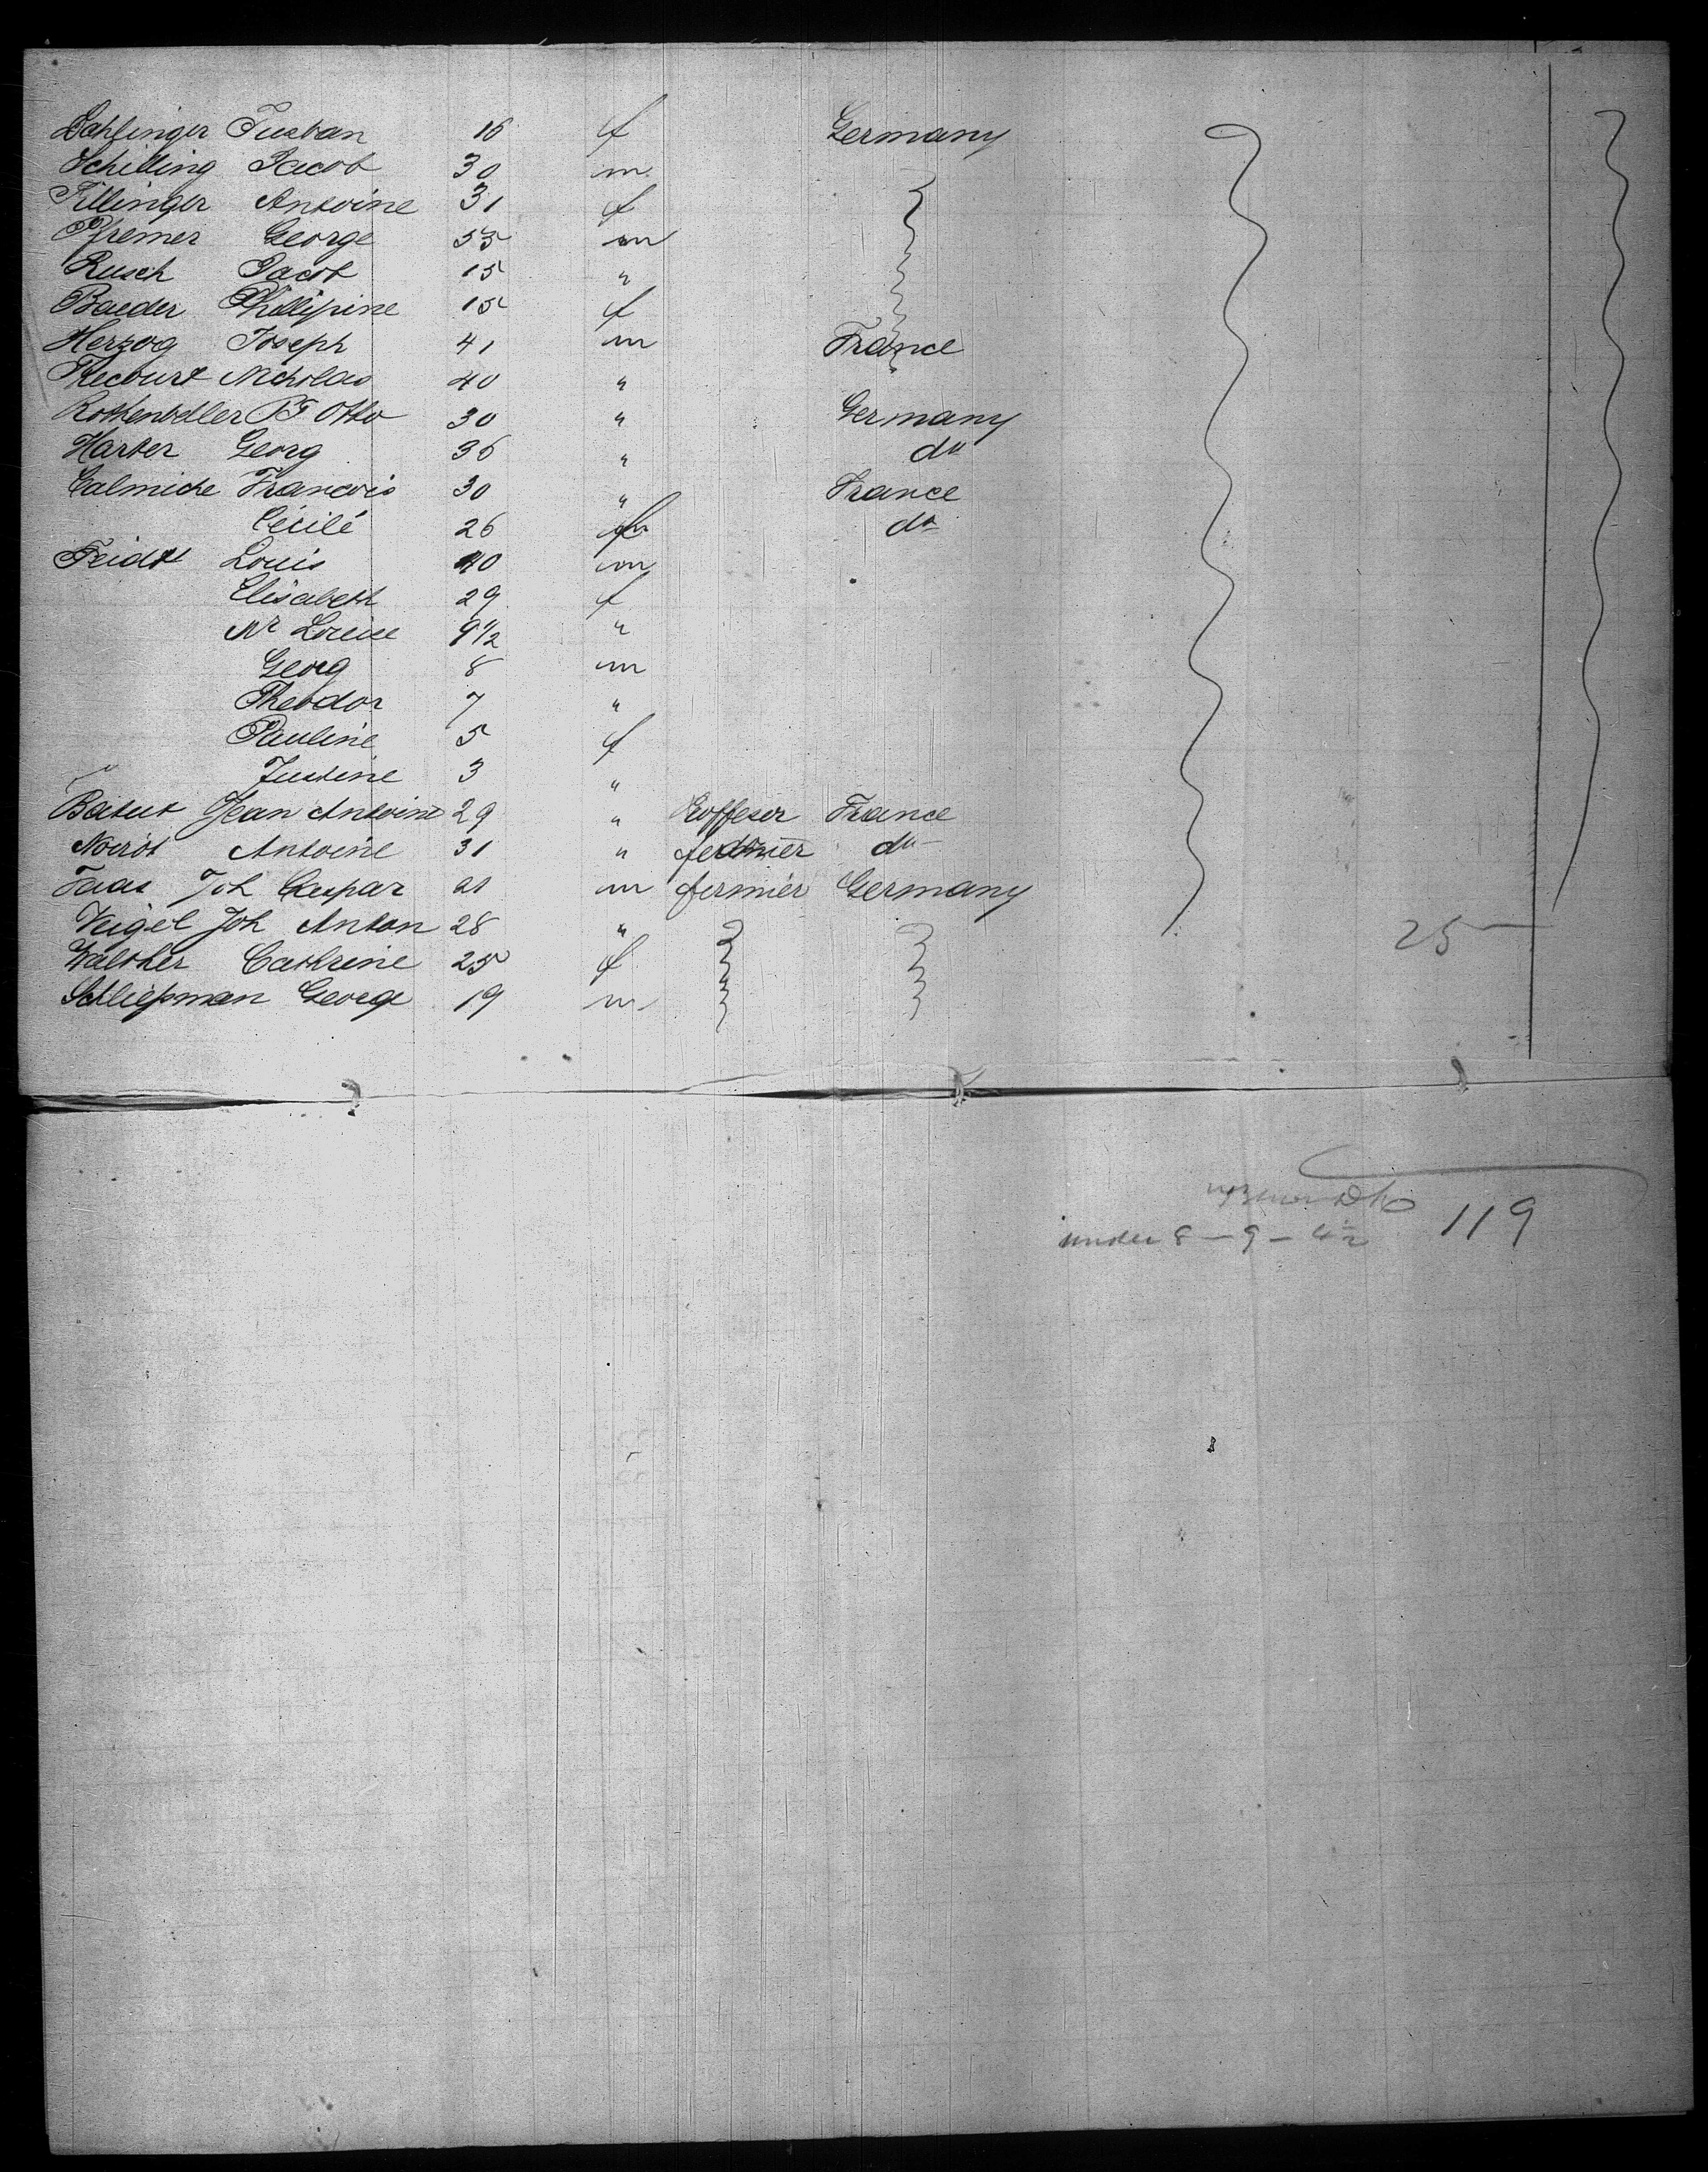 Dahlinger Justan 16 f Germany
Schilling Jacob 30 m
Fillinger Antoine 31 f
Pfremer George 53 m
Rusch Jacob 15 "
Baeder Phillipine 15 f
Herzog Joseph 41 m France
Thecourt Nicholas 40 "
Rothenbiller F Otto 30 " Germany
Harter Georg 36 " do
Calmiche Francois 30 " France
Cécile 26 f do
Feidt Louis 40 m
Elisabeth 29 f
Mr Louise 9 1/2 "
Georg 8 m
Theodor 7 "
Pauline 5 f
Justine 3 "
Batut Jean Antoine 29 " Proffeser France
Noirot Antoine 31 " do
Faas Joh Caspar 21 m fermier Germany
Veigel Joh Anton 28 "
Walther Cathrine 25 f
Schliepman George 19 m
25
119
under 8 - 9 - 4 1/2